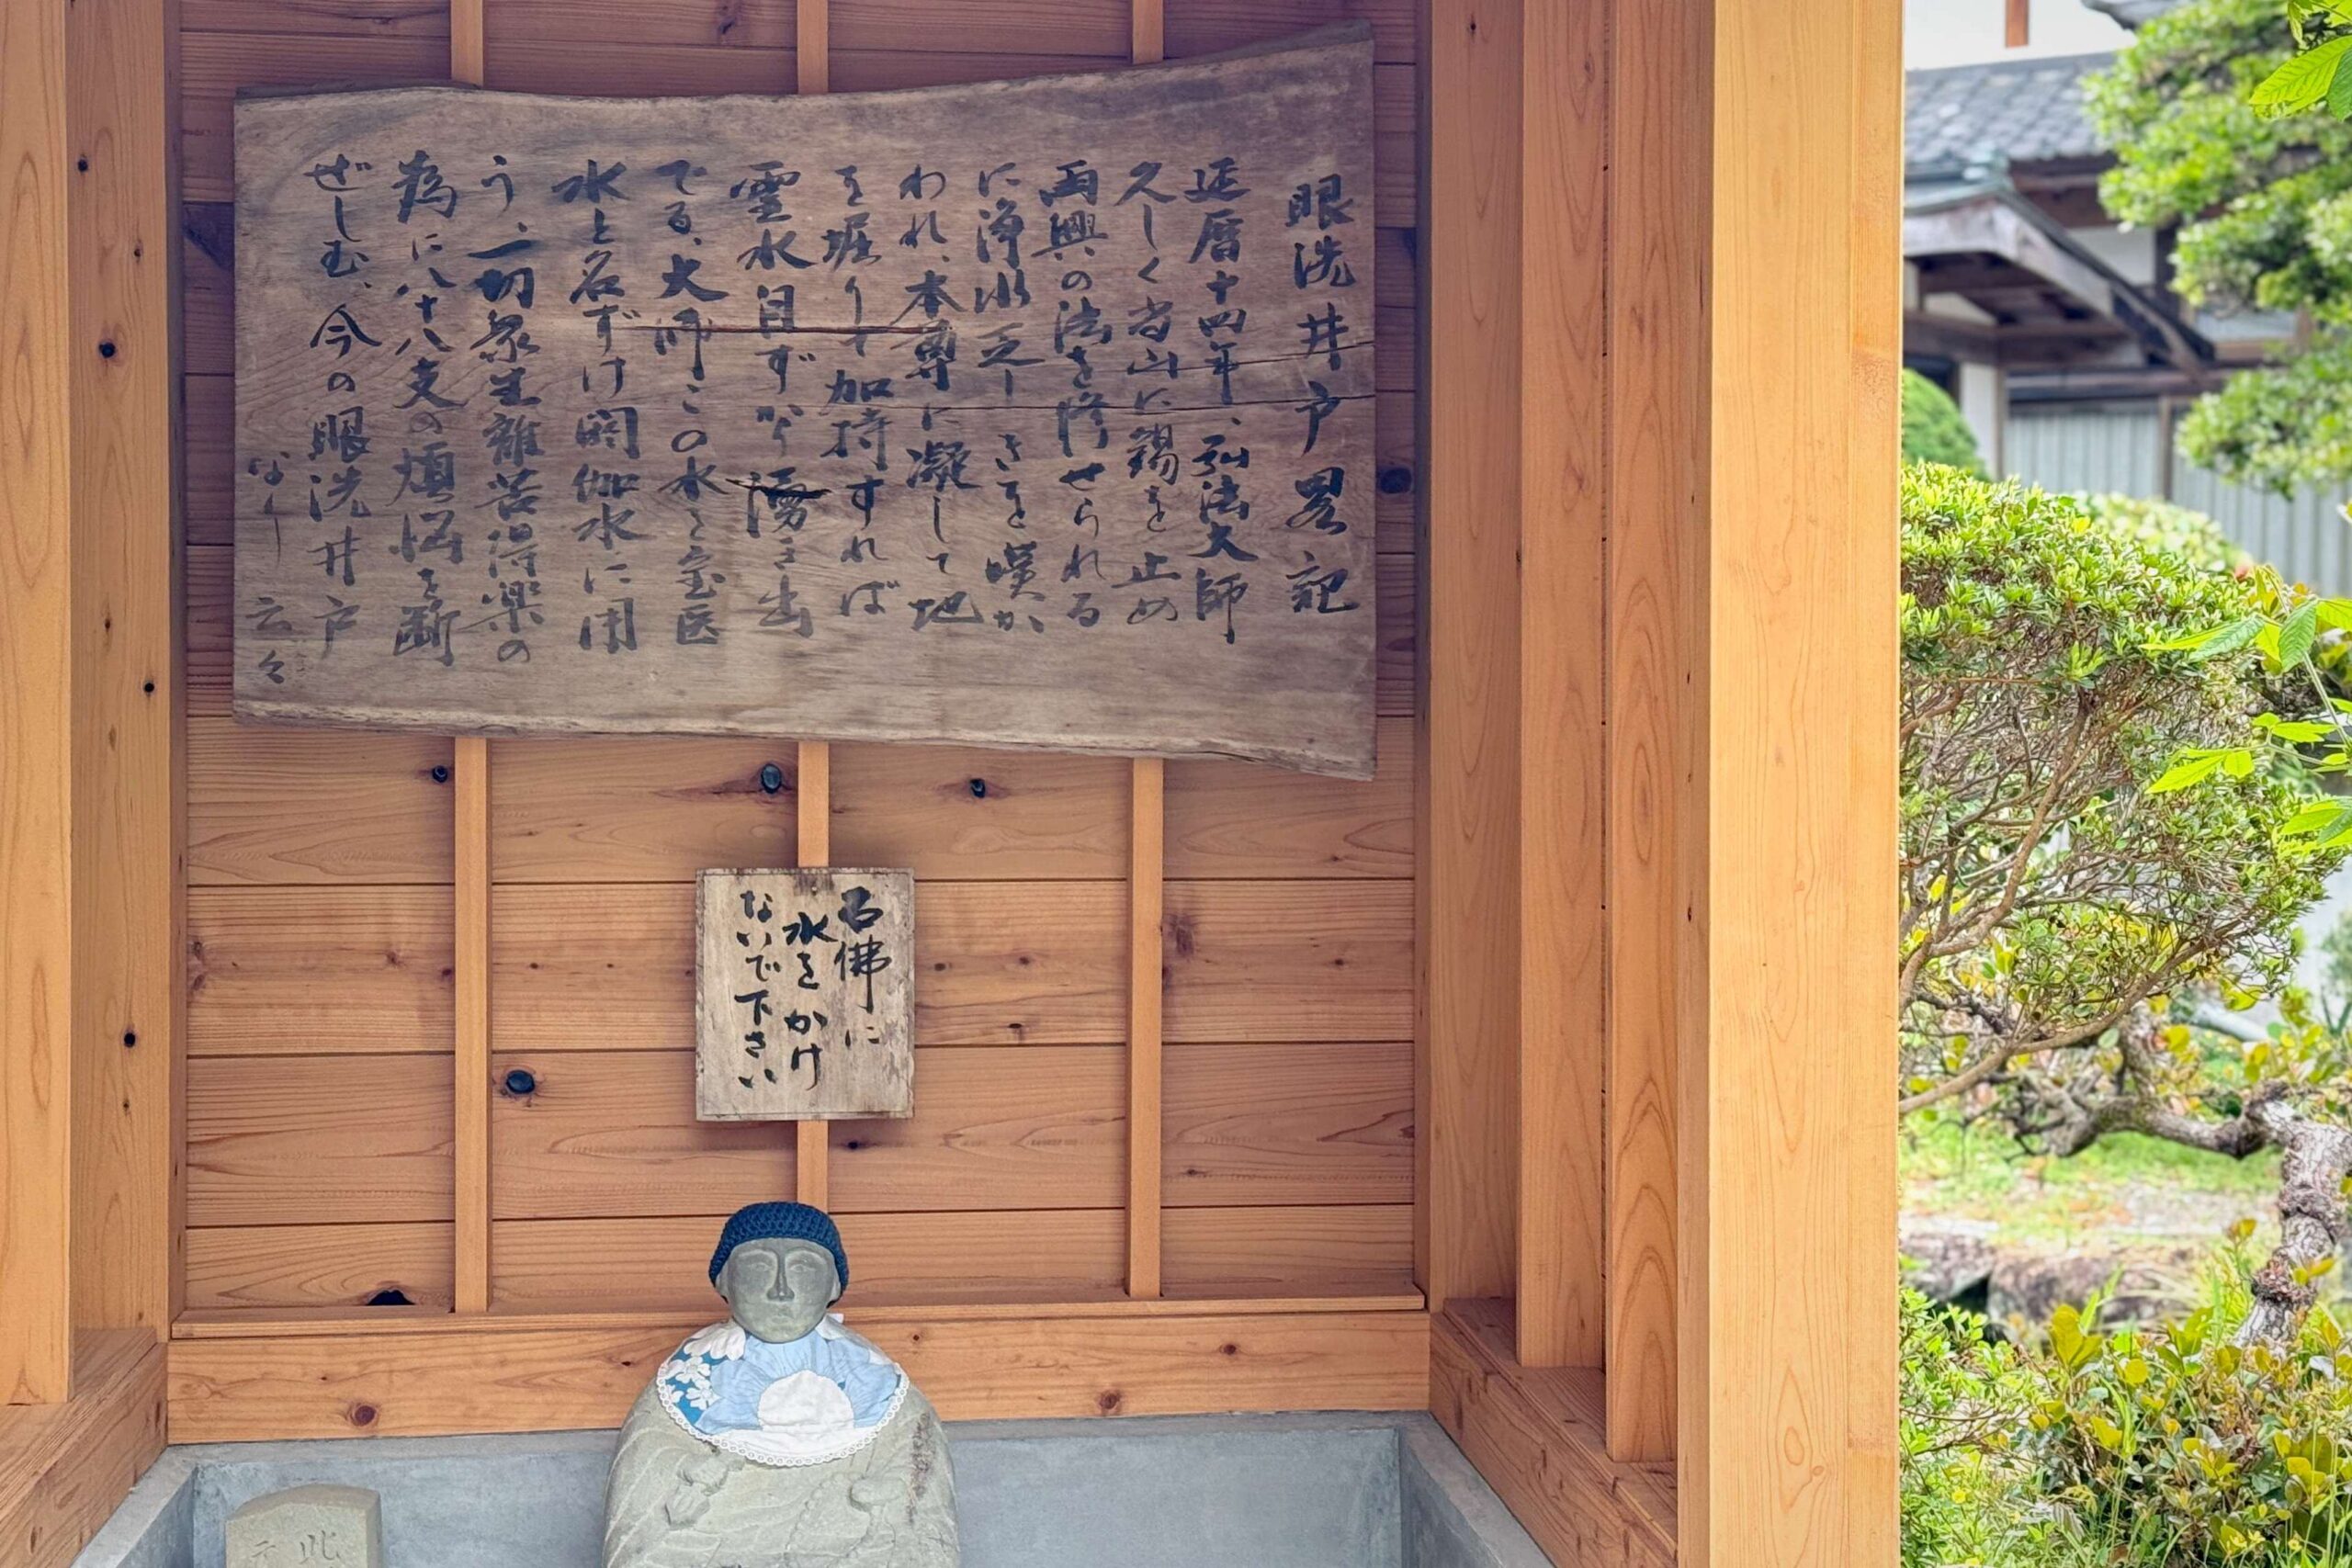 眼洗井戸畧記
延暦十四年、弘法大師
久しく当山に錫を止め
再興の法を修せられる
に浄水乏しきを嘆か
われ、本尊に凝して地
を堀りて加持すれば
霊水自ずから湧き出
でる、大師この水を宝医
水と名ずけ閼伽水に用
う、一切衆生離苦得楽の
為に八十八支の煩悩を断
ぜしむ、今の眼洗井戸
なり 云々
石佛に
水をかけ
ないで下さい